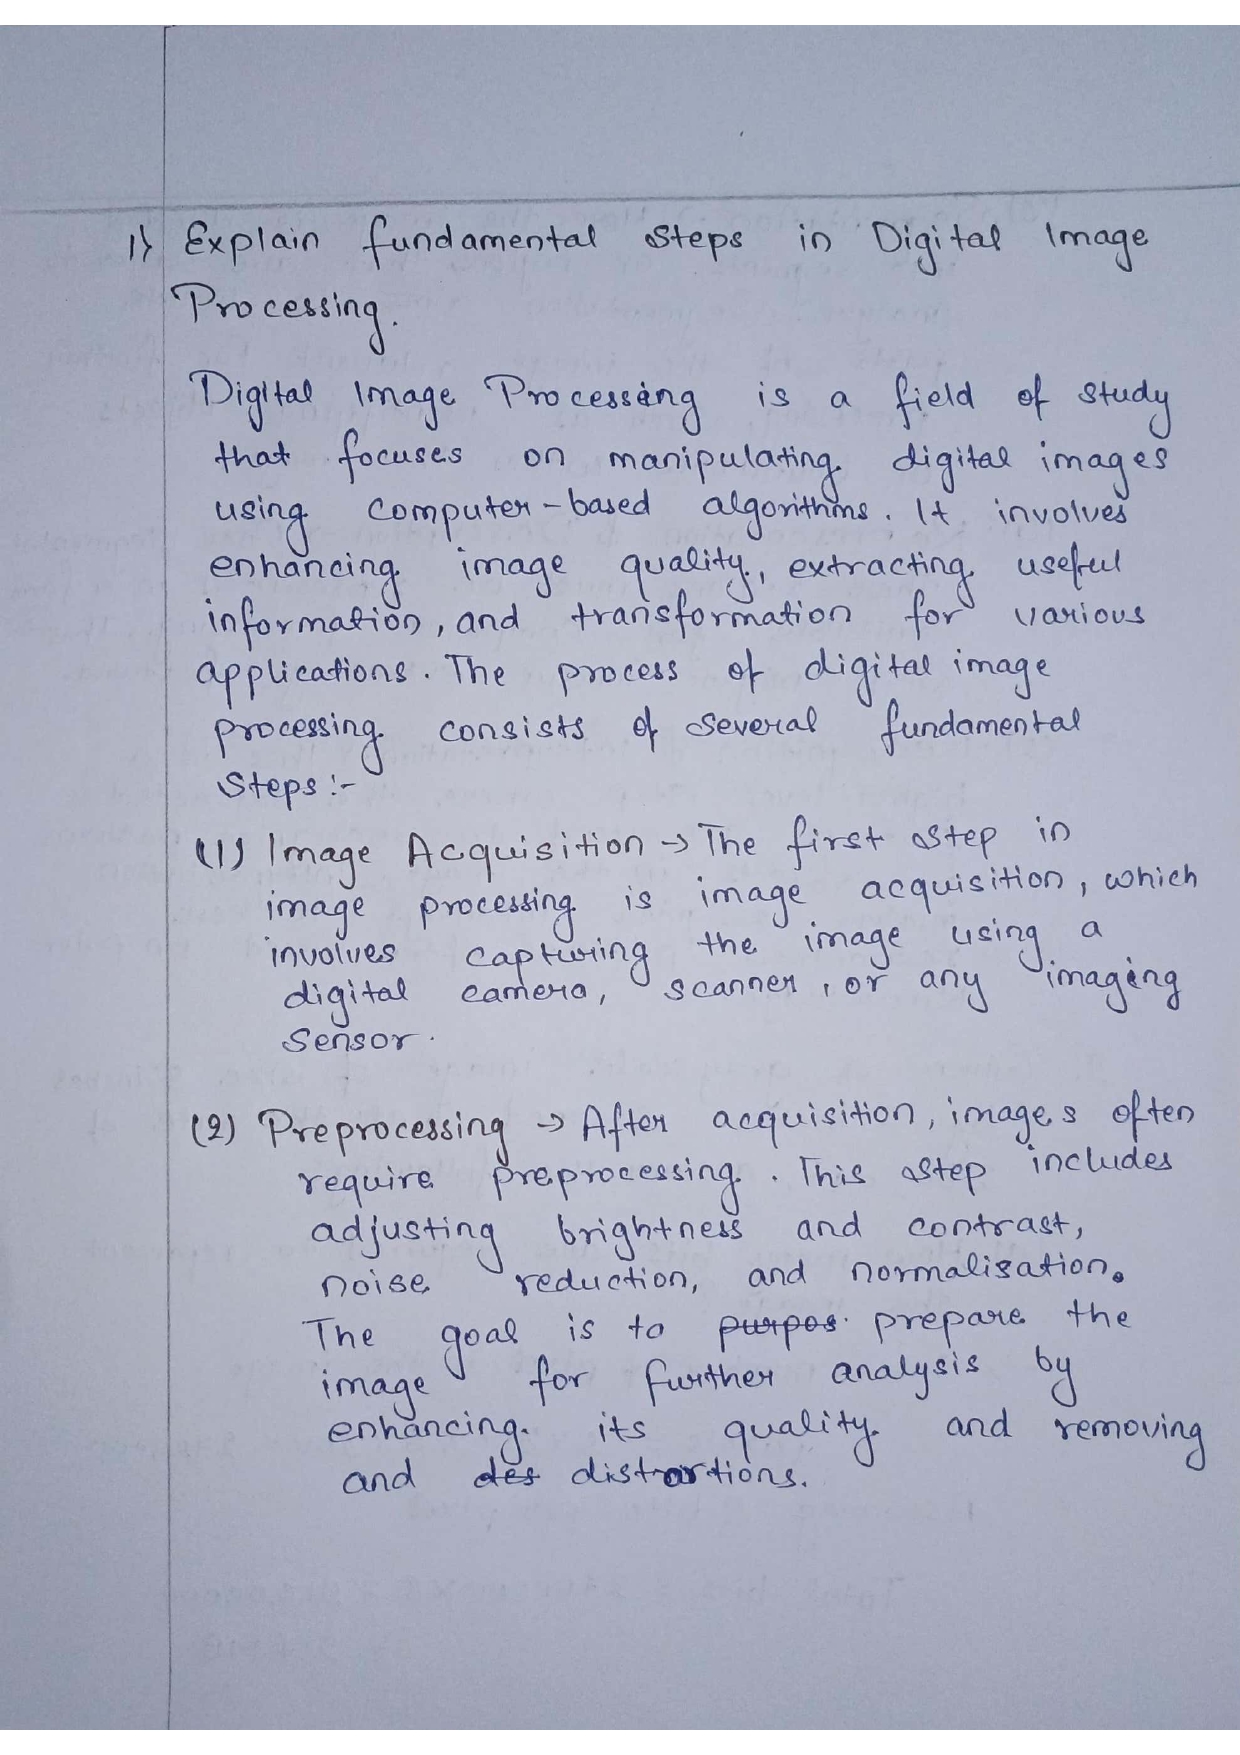 1) Explain fundamental steps in Digital Image
Processing.
Digital Image Processing is a field of study
that focuses on manipulating digital images
using computer-based algorithms. It involves
enhancing image quality, extracting useful
information, and transformation for various
applications. The process of digital image
processing consists of several fundamental
steps :-
(1) Image Acquisition → The first step in
image processing is image acquisition, which
involves capturing the image using a
digital camera, scanner, or any imaging
sensor.
(2) Preprocessing → After acquisition, images often
require preprocessing. This step includes
adjusting brightness and contrast,
noise reduction, and normalisation.
The goal is to purpos prepare the
image for further analysis by
enhancing its quality and removing
and des distortions.